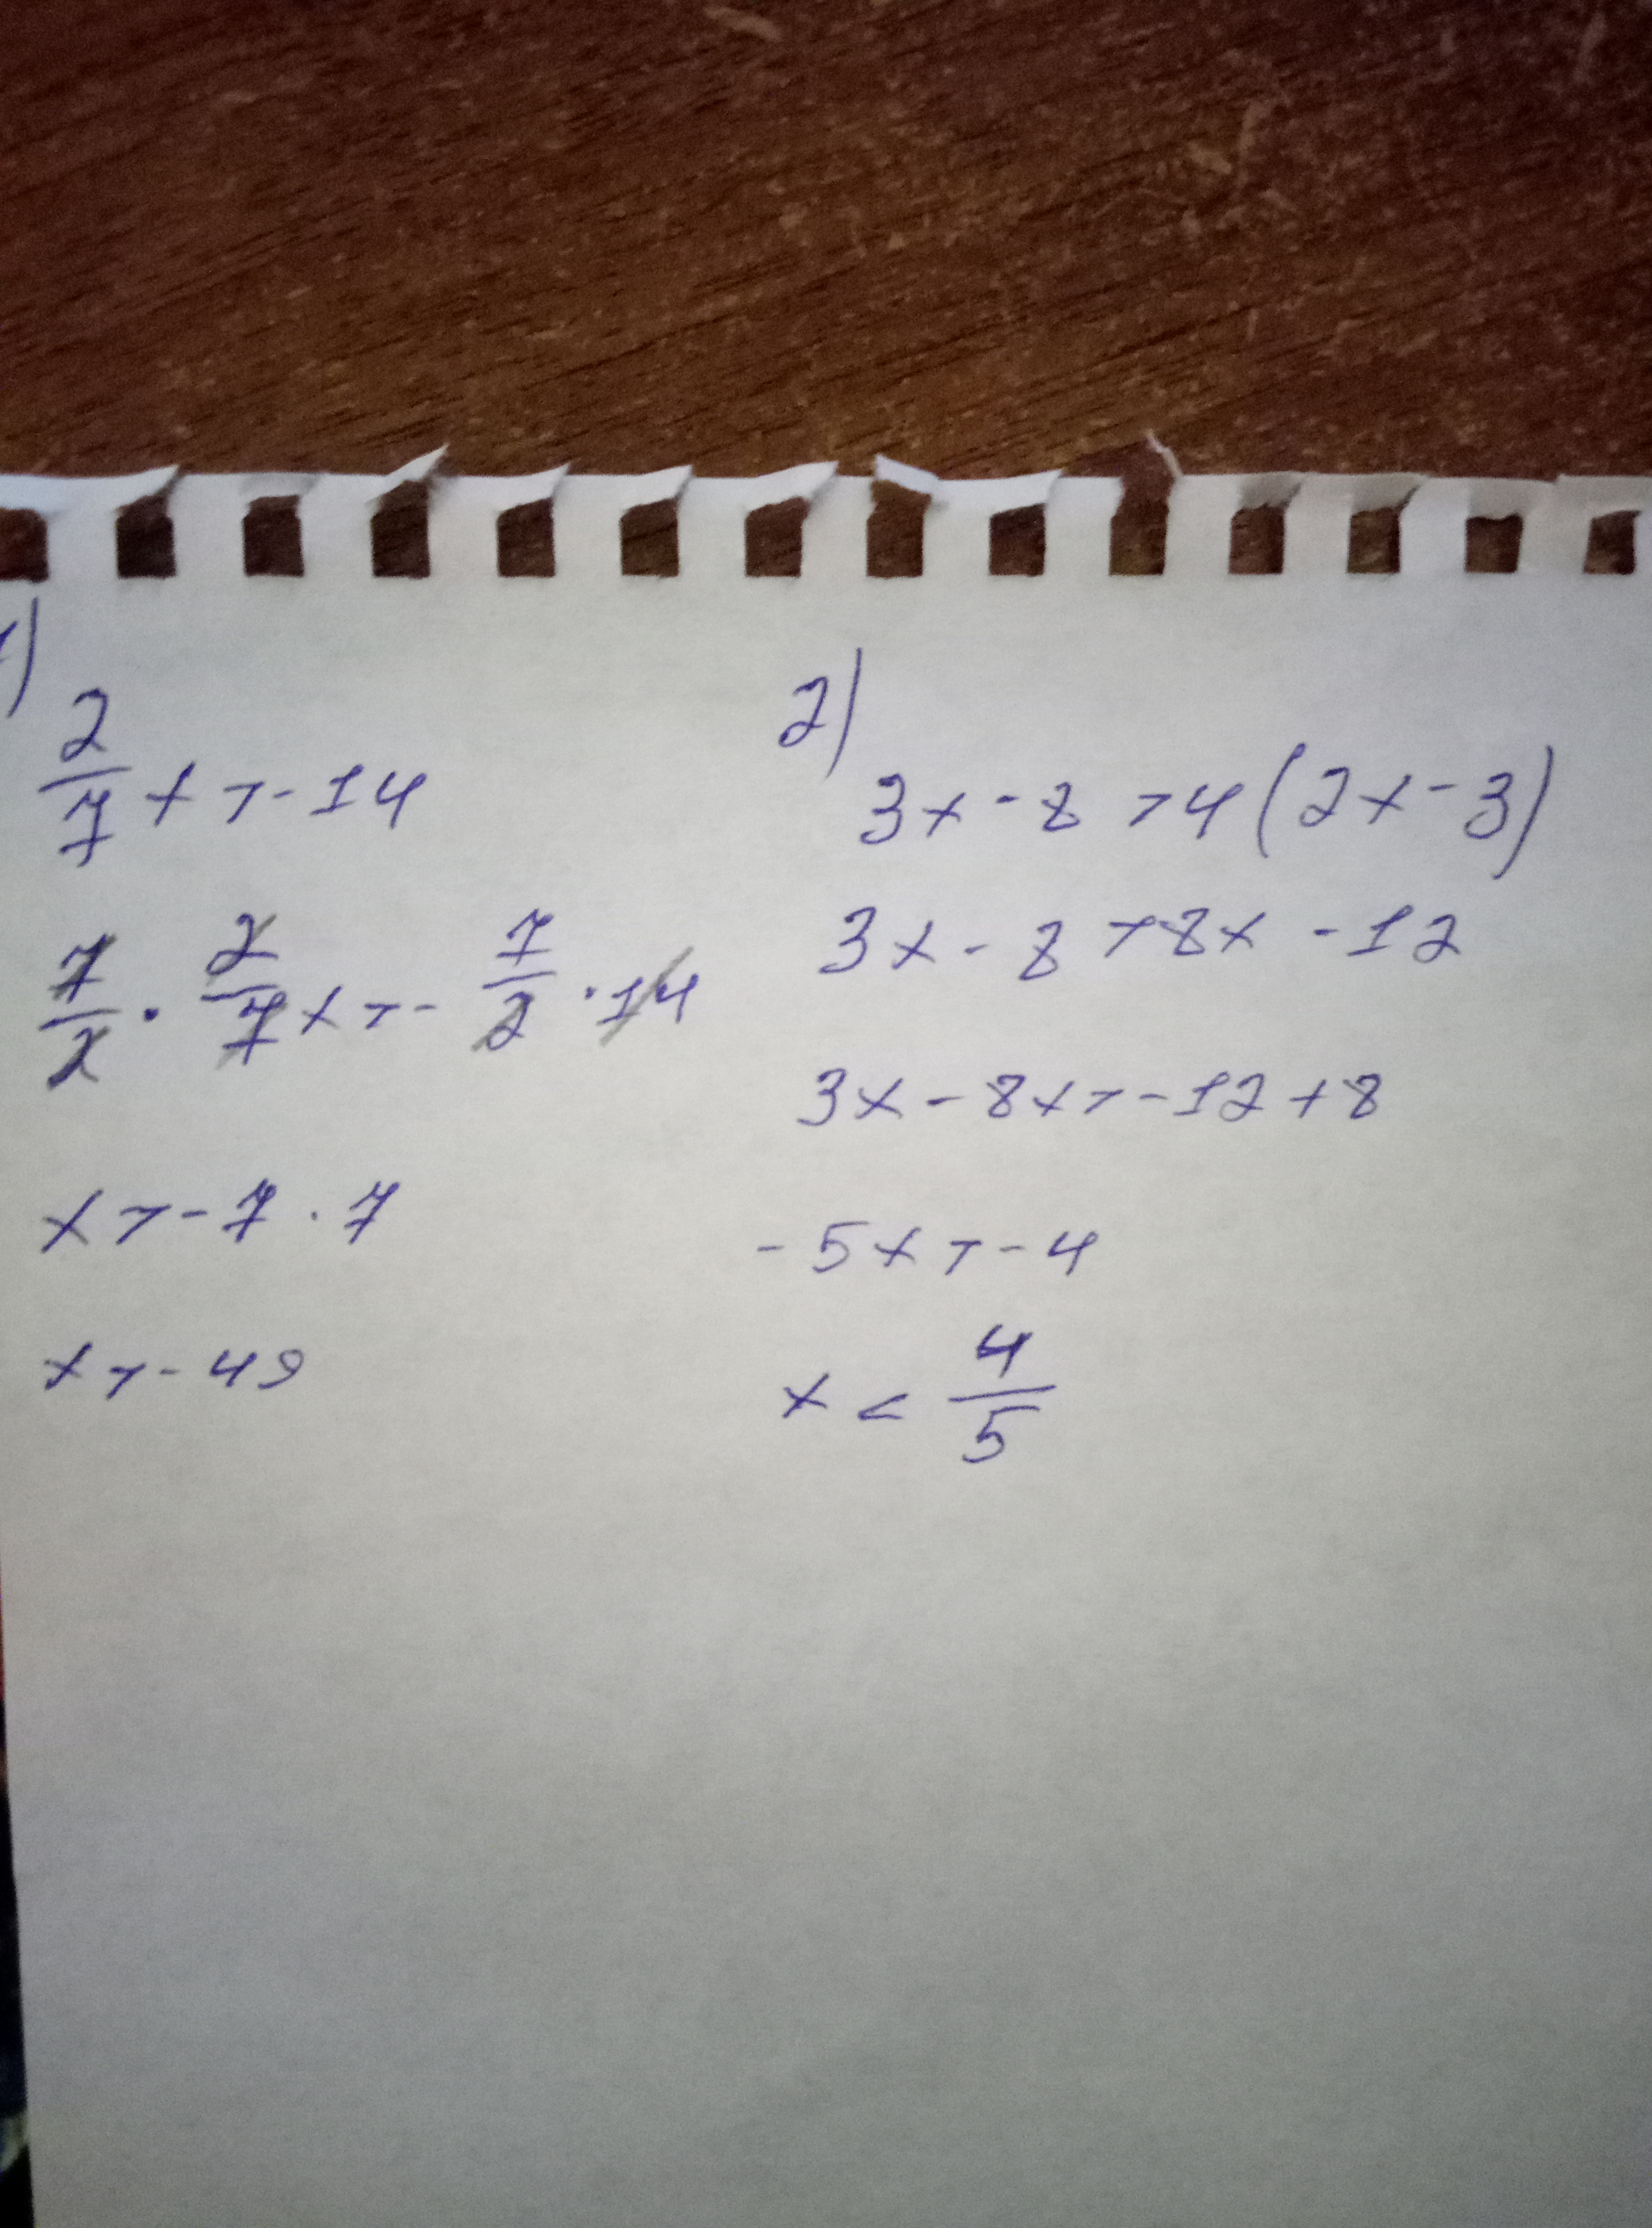 1)
2/7 x > -14
7/2 · 2/7 x > - 7/2 · 14
x > -7 · 7
x > -49
2)
3x - 8 > 4(2x - 3)
3x - 8 > 8x - 12
3x - 8x > -12 + 8
-5x > -4
x < 4/5